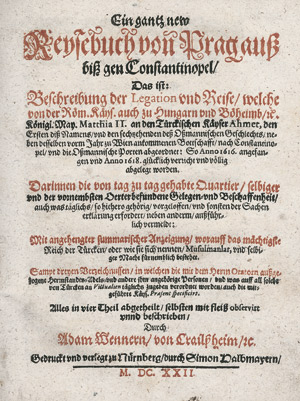 Ein gantz new
Reysebuch von Prag auß
biß gen Constantinopel/
Das ist:
Beschreibung der Legation und Reise/ welche
von der Röm. Käys. auch zu Hungarn und Böheimb/ ꝛc.
Königl. May. Matthia II. an den Türckischen Käyser Ahmet, den
Ersten diß Namens/ und den sechzehenden deß Oßmannischen Geschlechts/ ne-
ben desselben vorm Jahr zu Wien ankommenen Bottschafft/ nach Constantino-
pel/ und die Oßmannische Porten abgeordnet: So Anno 1616. angefan-
gen und Anno 1618. glücklich verricht und völlig
abgelegt worden.
Darinnen die von tag zu tag gehabte Quartier/ selbiger
und der vornembsten Oerter befundene Gelegen- und Beschaffenheit/
auch was täglichs/ so hiehero gehörig/ vorgeloffen/ und sonsten der Sachen
erklärung erfordert/ neben anderm/ außführ-
lich vermeldet:
Mit angehengter summarischer Anzeigung/ worauff das mächtigste
Reich der Türcken/ oder wie sie sich nennen/ Musulmanlar, und sel-
biges Macht fürnemblich bestehet.
Sampt dreyen Verzeichnussen/ in welchen die mit dem Herrn Oratorn außge-
zogene Herrnstandts/ Adels/ und andere ihme angehörige Personen/ und was auff alle solche
von Türcken an Victualien täglichs zugeben verordnet worden/ auch die mit-
geführte Käys. Praesent specificirt.
Alles in vier Theil abgetheilt/ selbsten mit fleiß observirt
unnd beschrieben/
Durch
Adam Wennern/ von Crailßheim/ ꝛc.
Gedruckt und verlegt zu Nürnberg/ durch Simon Halbmayern/
M. DC. XXII.